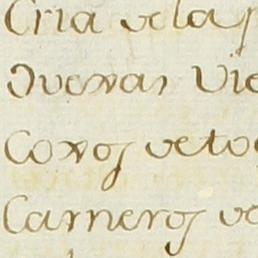 Cria de las
Ovexas Vie
Coxos de to
Carneros de